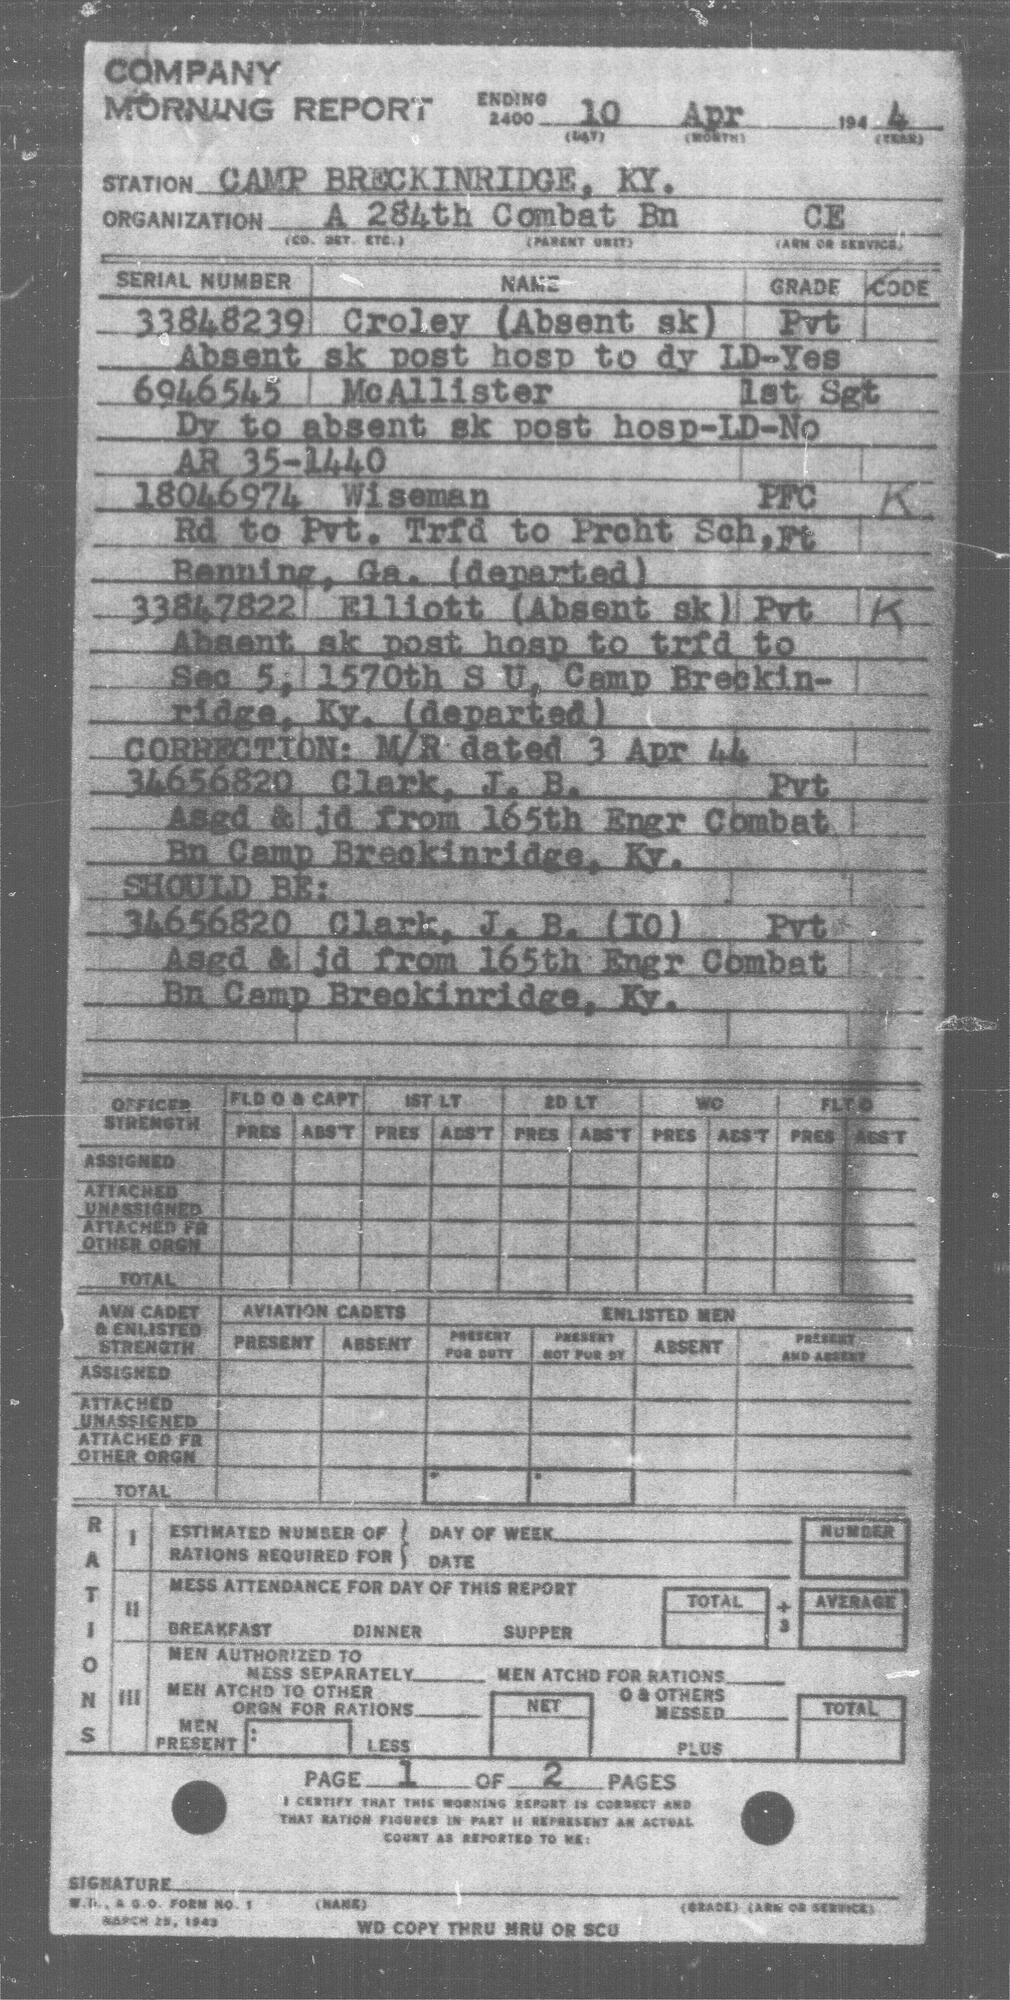 COMPANY
MORNING REPORT ENDING 2400 10 Apr 194 4
(DAY) (MONTH) (YEAR)
STATION CAMP BRECKINRIDGE, KY.
ORGANIZATION A 284th Combat Bn CE
(CO. DET. ETC.) (PARENT UNIT) (ARM OR SERVICE)
SERIAL NUMBER NAME GRADE CODE
33848239 Croley (Absent sk) Pvt
Absent sk post hosp to dy LD-Yes
6946545 McAllister 1st Sgt
Dy to absent sk post hosp-LD-No
AR 35-1440
18046974 Wiseman PFC K
Rd to Pvt. Trfd to Prcht Sch, Ft
Benning, Ga. (departed)
33847822 Elliott (Absent sk) Pvt K
Absent sk post hosp to trfd to
Sec 5, 1570th S U, Camp Breckin-
ridge, Ky. (departed)
CORRECTION: M/R dated 3 Apr 44
34656820 Clark, J. B. Pvt
Asgd & jd from 165th Engr Combat
Bn Camp Breckinridge, Ky.
SHOULD BE:
34656820 Clark, J. B. (IO) Pvt
Asgd & jd from 165th Engr Combat
Bn Camp Breckinridge, Ky.
OFFICER STRENGTH FLD O & CAPT 1ST LT 2D LT WO FLT O
PRES ABS'T PRES ABS'T PRES ABS'T PRES ABS'T PRES ABS'T
ASSIGNED
ATTACHED
UNASSIGNED
ATTACHED FR
OTHER ORGN
TOTAL
AVN CADET & ENLISTED STRENGTH AVIATION CADETS ENLISTED MEN
PRESENT ABSENT PRESENT FOR DUTY PRESENT NOT FOR DY ABSENT PRESENT AND ABSENT
ASSIGNED
ATTACHED
UNASSIGNED
ATTACHED FR
OTHER ORGN
TOTAL
RATIONS
I ESTIMATED NUMBER OF DAY OF WEEK NUMBER
RATIONS REQUIRED FOR DATE
II MESS ATTENDANCE FOR DAY OF THIS REPORT TOTAL ÷ 3 AVERAGE
BREAKFAST DINNER SUPPER
III MEN AUTHORIZED TO
MESS SEPARATELY MEN ATCHD FOR RATIONS
MEN ATCHD TO OTHER
ORGN FOR RATIONS NET O & OTHERS MESSED TOTAL
MEN PRESENT LESS PLUS
PAGE 1 OF 2 PAGES
I CERTIFY THAT THIS MORNING REPORT IS CORRECT AND
THAT RATION FIGURES IN PART II REPRESENT AN ACTUAL
COUNT AS REPORTED TO ME:
SIGNATURE
W.D., A.G.O. FORM NO. 1 (NAME) (GRADE) (ARM OR SERVICE)
MARCH 25, 1943
WD COPY THRU MRU OR SCU